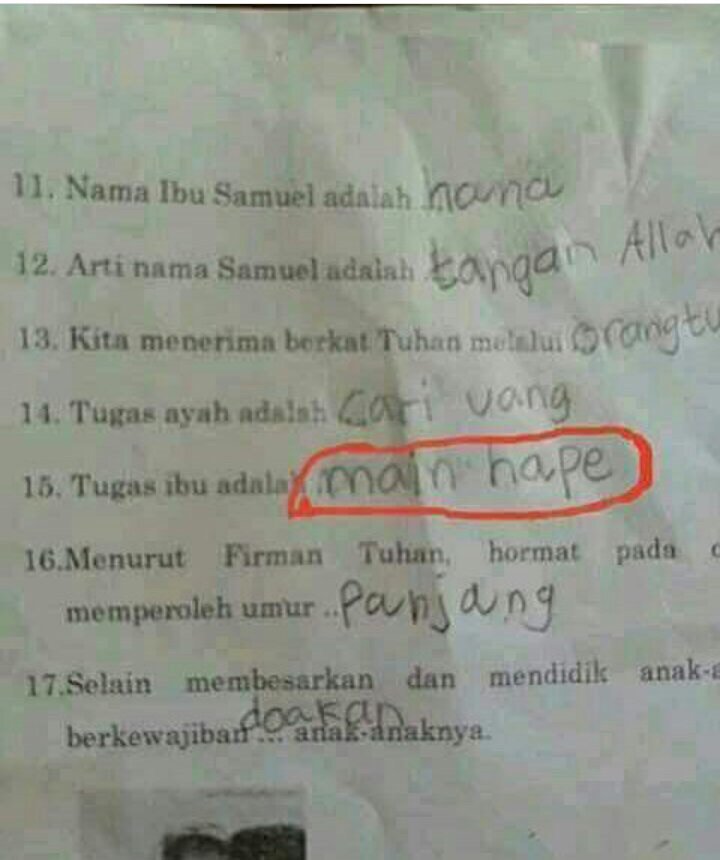 11. Nama Ibu Samuel adalah hana
12. Arti nama Samuel adalah tangan Allah
13. Kita menerima berkat Tuhan melalui Orangtu
14. Tugas ayah adalah Cari uang
15. Tugas ibu adalah main hape
16.Menurut Firman Tuhan, hormat pada
memperoleh umur ..Panjang
17.Selain membesarkan dan mendidik anak-a
berkewajiban doakan ... anak-anaknya.